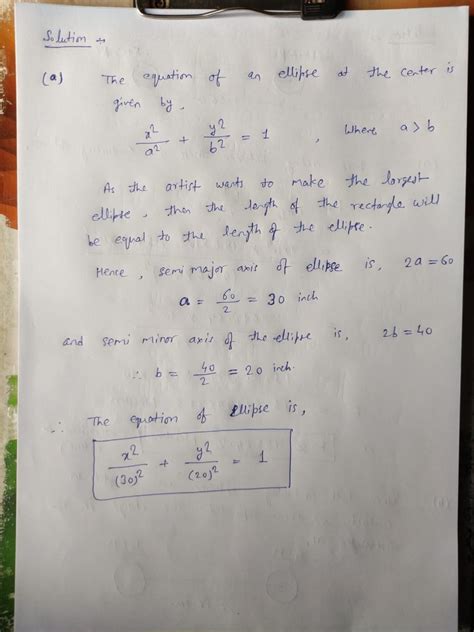 Solution →
(a) The equation of an ellipse at the center is
given by,
x²/a² + y²/b² = 1 , Where a > b
As the artist wants to make the largest
ellipse, then the length of the rectangle will
be equal to the length of the ellipse.
Hence, semi major axis of ellipse is, 2a = 60
a = 60/2 = 30 inch
and semi minor axis of the ellipse is, 2b = 40
∴ b = 40/2 = 20 inch.
∴ The equation of ellipse is,
x²/(30)² + y²/(20)² = 1